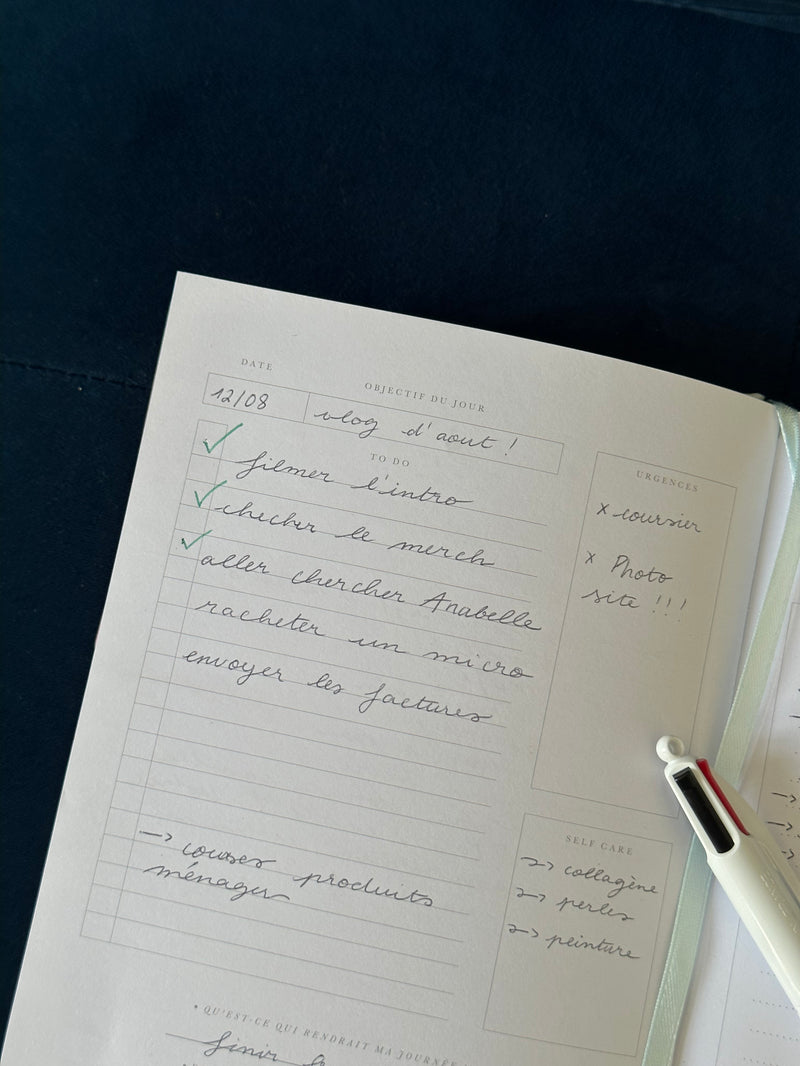 DATE
OBJECTIF DU JOUR
12/08
vlog d'aout !
TO DO
filmer l'intro
checker le merch
aller chercher Anabelle
racheter un micro
envoyer les factures
-> courses produits
ménager
URGENCES
x coursier
x Photo
site !!!
SELF CARE
-> collagène
-> perles
-> peinture
* QU'EST-CE QUI RENDRAIT MA JOURNÉE
finir